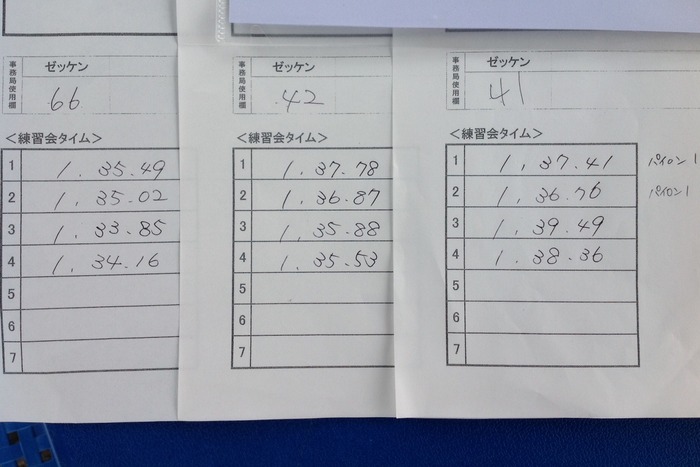 事務局使用欄
ゼッケン
66
<練習会タイム>
1 1.35.49
2 1.35.02
3 1.33.85
4 1.34.16
5
6
7
事務局使用欄
ゼッケン
42
<練習会タイム>
1 1.37.78
2 1.36.87
3 1.35.88
4 1.35.53
5
6
7
事務局使用欄
ゼッケン
41
<練習会タイム>
1 1.37.41 パイロン1
2 1.36.76 パイロン1
3 1.39.49
4 1.38.36
5
6
7